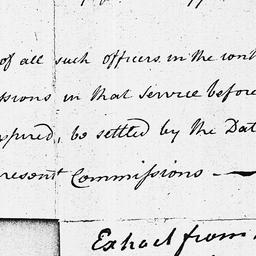 of all such officers in the
ssions in that Service before
xpired, be settled by the Dat
resent Commissions —
Extract from